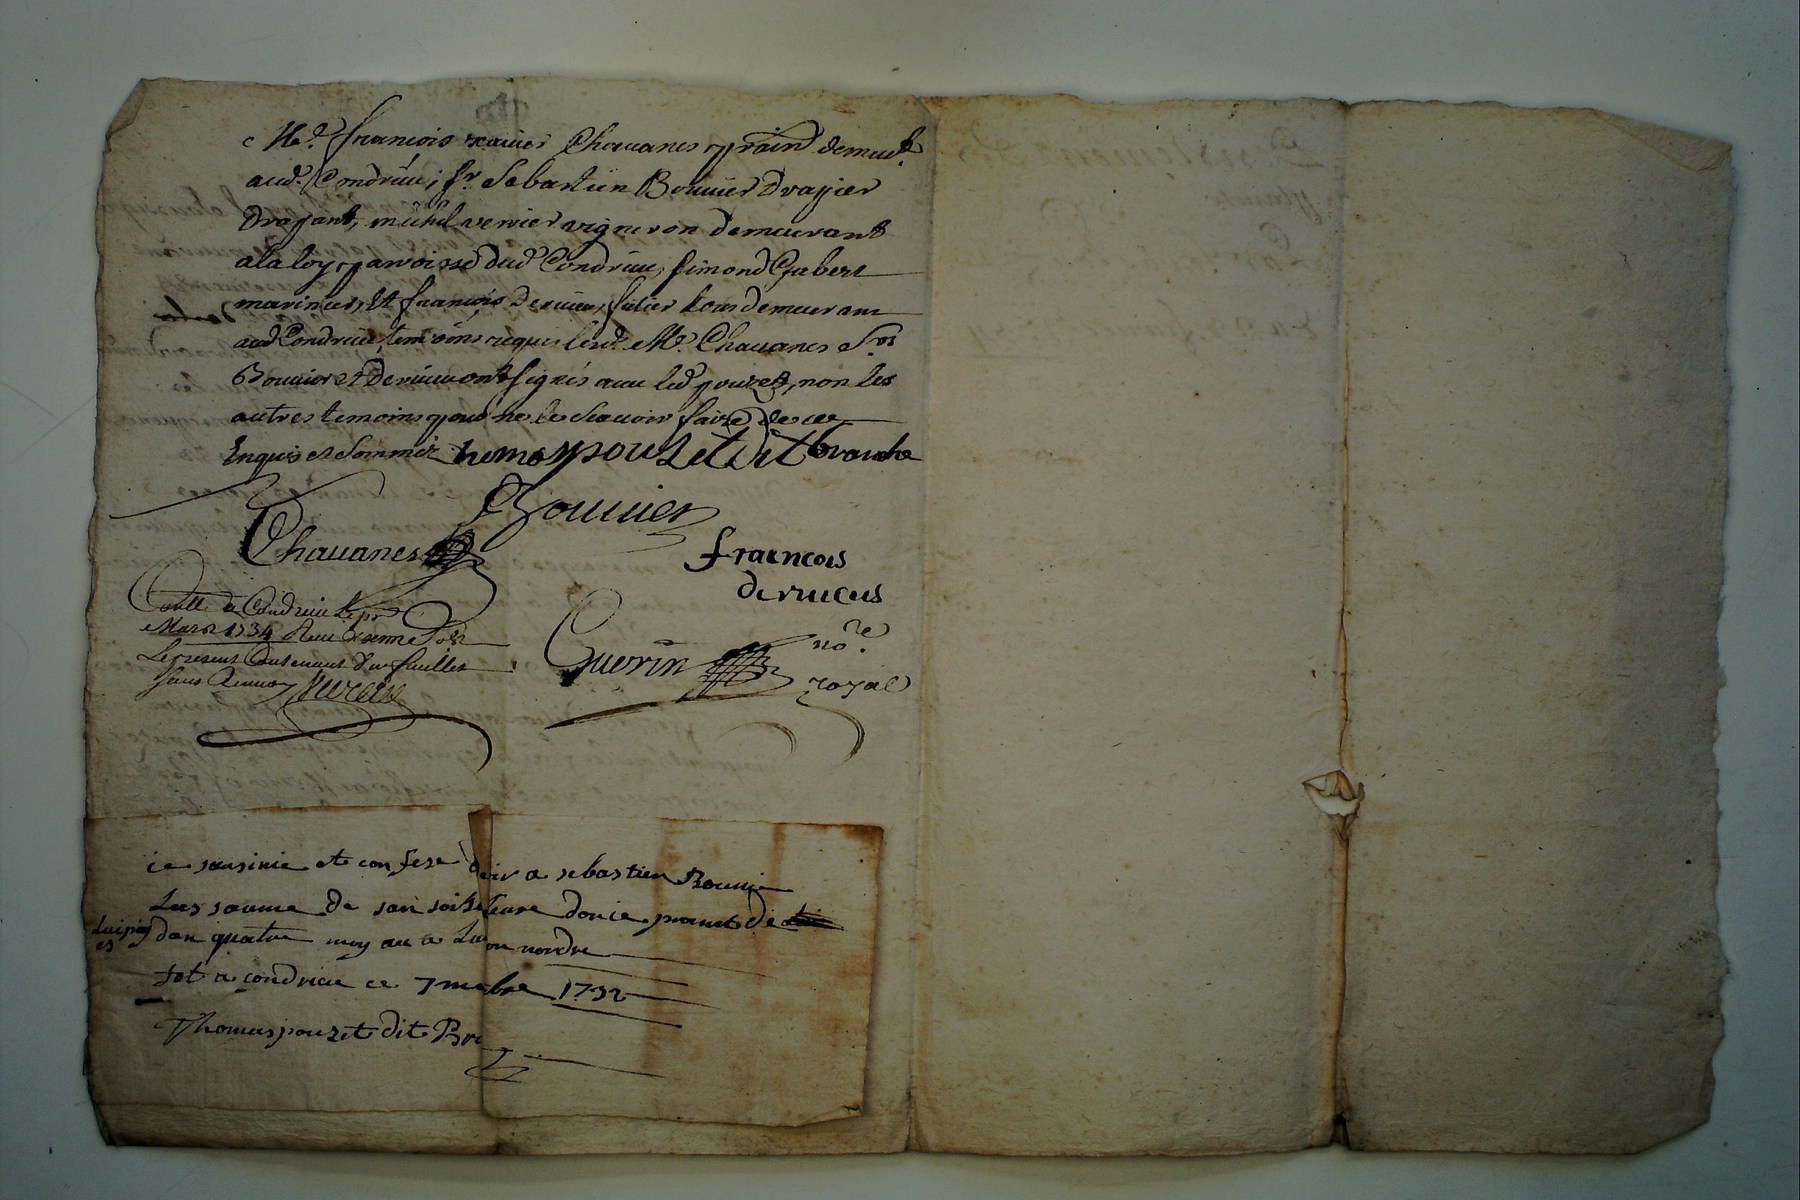 Me. francois xavier Chavanes prain demeut.
aud. Condrieu; sr. Sebastien Bouvier Drapier
Drapant, michel verrier vigneron demeurant
a la loy parroisse dud Condrieu, simond Gabert
marinier, et françois derieu, demeurans
aud Condrieu, temoins requis led. Me. Chavanes Srs
Bouvier et Derieu ont signés avec led pouzet, non les
autres temoins pour ne le scavoir faire de ce
Enquis et sommez thomas pouzet dit branche
Bouvier
Chavanes
francois
derucus
Con̄lle a Condrieu le pr
Mars 1734
Le present Contenant feuillet
Guerin nore
royal
ie sousinie et confese deoir a sebastien Bouvie
Las soume de donie promet de
Luipaj dan quatre moy au a Lui ou nordre
fet a condrieu ce 7 mebre 1732
Thomas pouzet dit Br